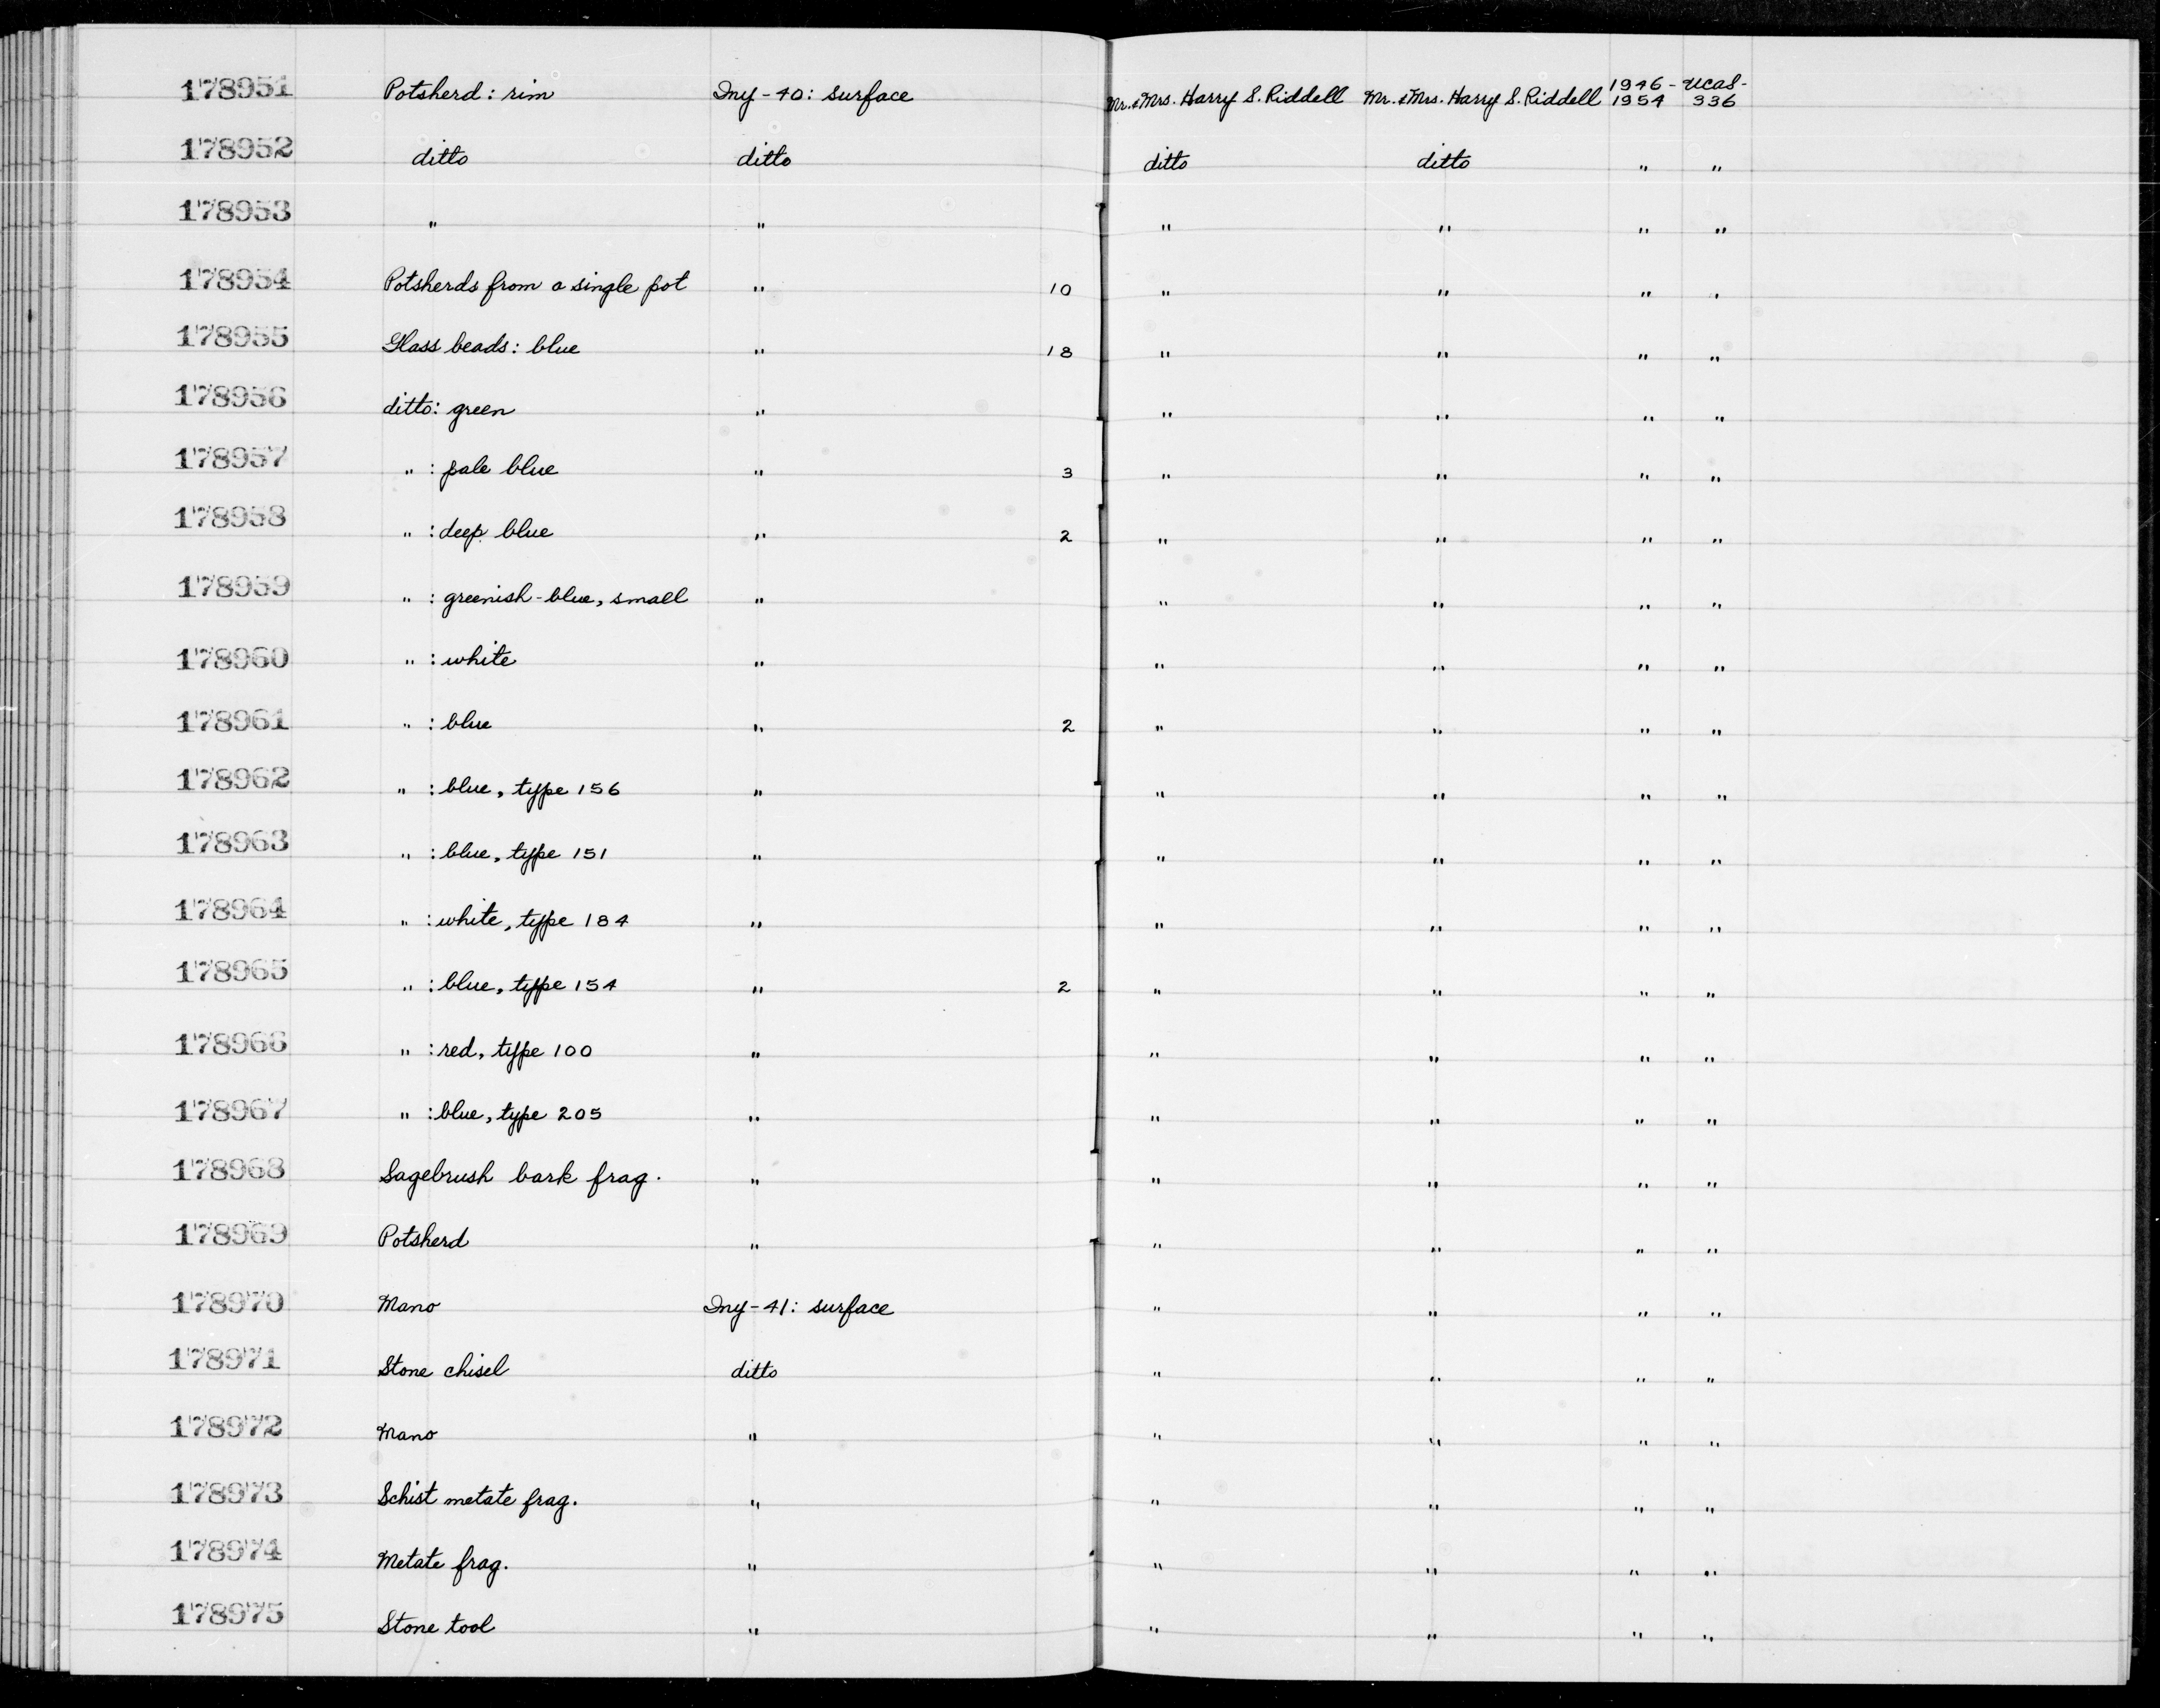 178951 Potsherd: rim Iny-40: surface Mr. & Mrs. Harry S. Riddell Mr. & Mrs. Harry S. Riddell 1946-1954 UCAS-336
178952 ditto ditto ditto ditto " "
178953 " " " " " "
178954 Potsherds from a single pot " 10 " " " "
178955 Glass beads: blue " 18 " " " "
178956 ditto: green " " " " "
178957 " : pale blue " 3 " " " "
178958 " : deep blue " 2 " " " "
178959 " : greenish-blue, small " " " " "
178960 " : white " " " " "
178961 " : blue " 2 " " " "
178962 " : blue, type 156 " " " " "
178963 " : blue, type 151 " " " " "
178964 " : white, type 184 " " " " "
178965 " : blue, type 154 " 2 " " " "
178966 " : red, type 100 " " " " "
178967 " : blue, type 205 " " " " "
178968 Sagebrush bark frag. " " " " "
178969 Potsherd " " " " "
178970 Mano Iny-41: surface " " " "
178971 Stone chisel ditto " " " "
178972 Mano " " " " "
178973 Schist metate frag. " " " " "
178974 Metate frag. " " " " "
178975 Stone tool " " " " "